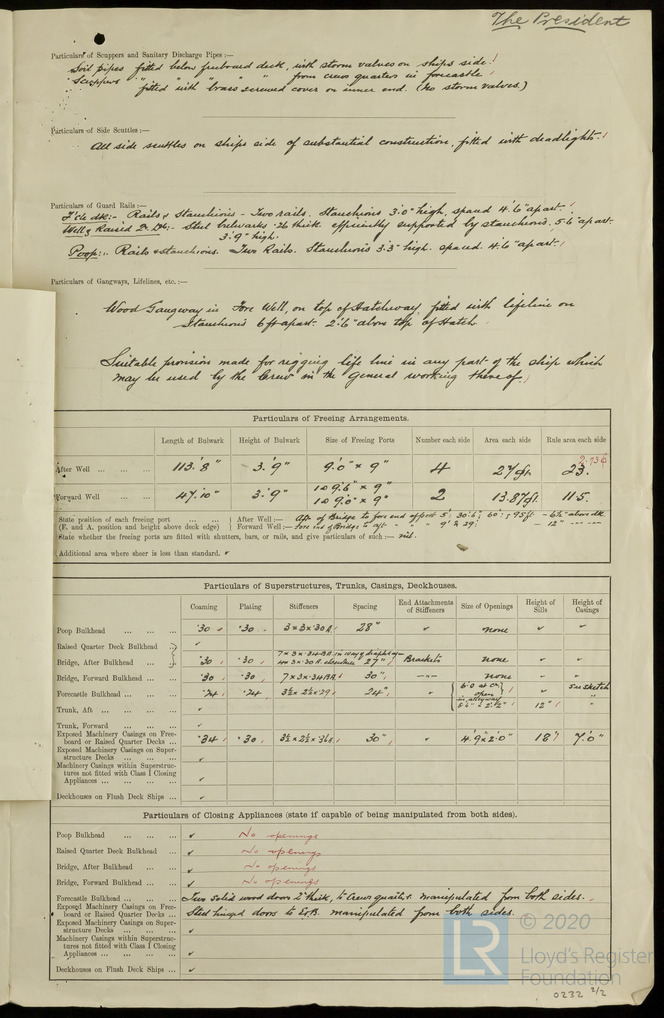 The President
Particulars of Scuppers and Sanitary Discharge Pipes :—
Soil pipes fitted below freeboard deck, with storm valves on ships side.
Scuppers " " " " from crews quarters in forecastle
fitted with brass screwed cover on inner end. (No storm valves.)
Particulars of Side Scuttles :—
All side scuttles on ships side of substantial construction, fitted with deadlights.
Particulars of Guard Rails :—
F'cle dk:- Rails & Stanchions - Two rails. Stanchions 3'.0" high, spaced 4'.6" apart.
Well & Raised Qr Dk:- Steel bulwarks .26 thick efficiently supported by stanchions, 5'.6" apart.
3'.9" high.
Poop:- Rails & stanchions. Two Rails. Stanchions 3'.3" high. spaced 4'.6" apart.
Particulars of Gangways, Lifelines, etc. :—
Wood Gangway in Fore Well, on top of Hatchway, fitted with lifeline on
Stanchions 6 ft apart. 2'.6" above top of Hatch.
Suitable provision made for rigging life line in any part of the ship which
may be used by the Crew in the General working thereof.
Particulars of Freeing Arrangements.
Length of Bulwark Height of Bulwark Size of Freeing Ports Number each side Area each side Rule area each side
After Well ... ... ... 113'.8" 3'.9" 9'.0" × 9" 4 27 23.
Forward Well ... ... 47'.10" 3'.9" 1 @ 9'.6" × 9" 1 @ 9'.0" × 9" 2 13.87 11.5.
State position of each freeing port ... ... After Well :— Aft of Bridge to fore end of port
(F. and A. position and height above deck edge) Forward Well :— Fore end of Bridge to aft
State whether the freeing ports are fitted with shutters, bars, or rails, and give particulars of such :— nil.
Additional area where sheer is less than standard.
Particulars of Superstructures, Trunks, Casings, Deckhouses.
Coaming Plating Stiffeners Spacing End Attachments of Stiffeners Size of Openings Height of Sills Height of Casings
Poop Bulkhead ... ... ... .30 .30 3 × 3 × .30 A. 28" none
Raised Quarter Deck Bulkhead ...
Bridge, After Bulkhead ... ... .30 .30 27" Brackets none
Bridge, Forward Bulkhead ... .30 .30 7 × 3 × .34 BA 30" none
Forecastle Bulkhead ... ... .24 .24 3½ × 2½ × .29 24" 6'.0 at CL open see sketch
Trunk, Aft ... ... ... in alleyway 12"
Trunk, Forward ... ... ...
Exposed Machinery Casings on Free-
board or Raised Quarter Decks ... .34 .30 30" 4'.9" × 2'.0" 18" 7'.0"
Exposed Machinery Casings on Super-
structure Decks ... ... ...
Machinery Casings within Superstruc-
tures not fitted with Class I Closing
Appliances ... ... ... ...
Deckhouses on Flush Deck Ships ...
Particulars of Closing Appliances (state if capable of being manipulated from both sides).
Poop Bulkhead ... ... ... No openings
Raised Quarter Deck Bulkhead ... No openings
Bridge, After Bulkhead ... ... No openings
Bridge, Forward Bulkhead ... ... No openings
Forecastle Bulkhead ... ... Two solid wood doors 2" thick, to Crews quarters. manipulated from both sides.
Exposed Machinery Casings on Free-
board or Raised Quarter Decks ... Steel hinged doors to E&B. manipulated from both sides.
Exposed Machinery Casings on Super-
structure Decks ... ... ...
Machinery Casings within Superstruc-
tures not fitted with Class I Closing
Appliances ... ... ... ...
Deckhouses on Flush Deck Ships ...
LR
© 2020
Lloyd's Register
Foundation
0232 2/2